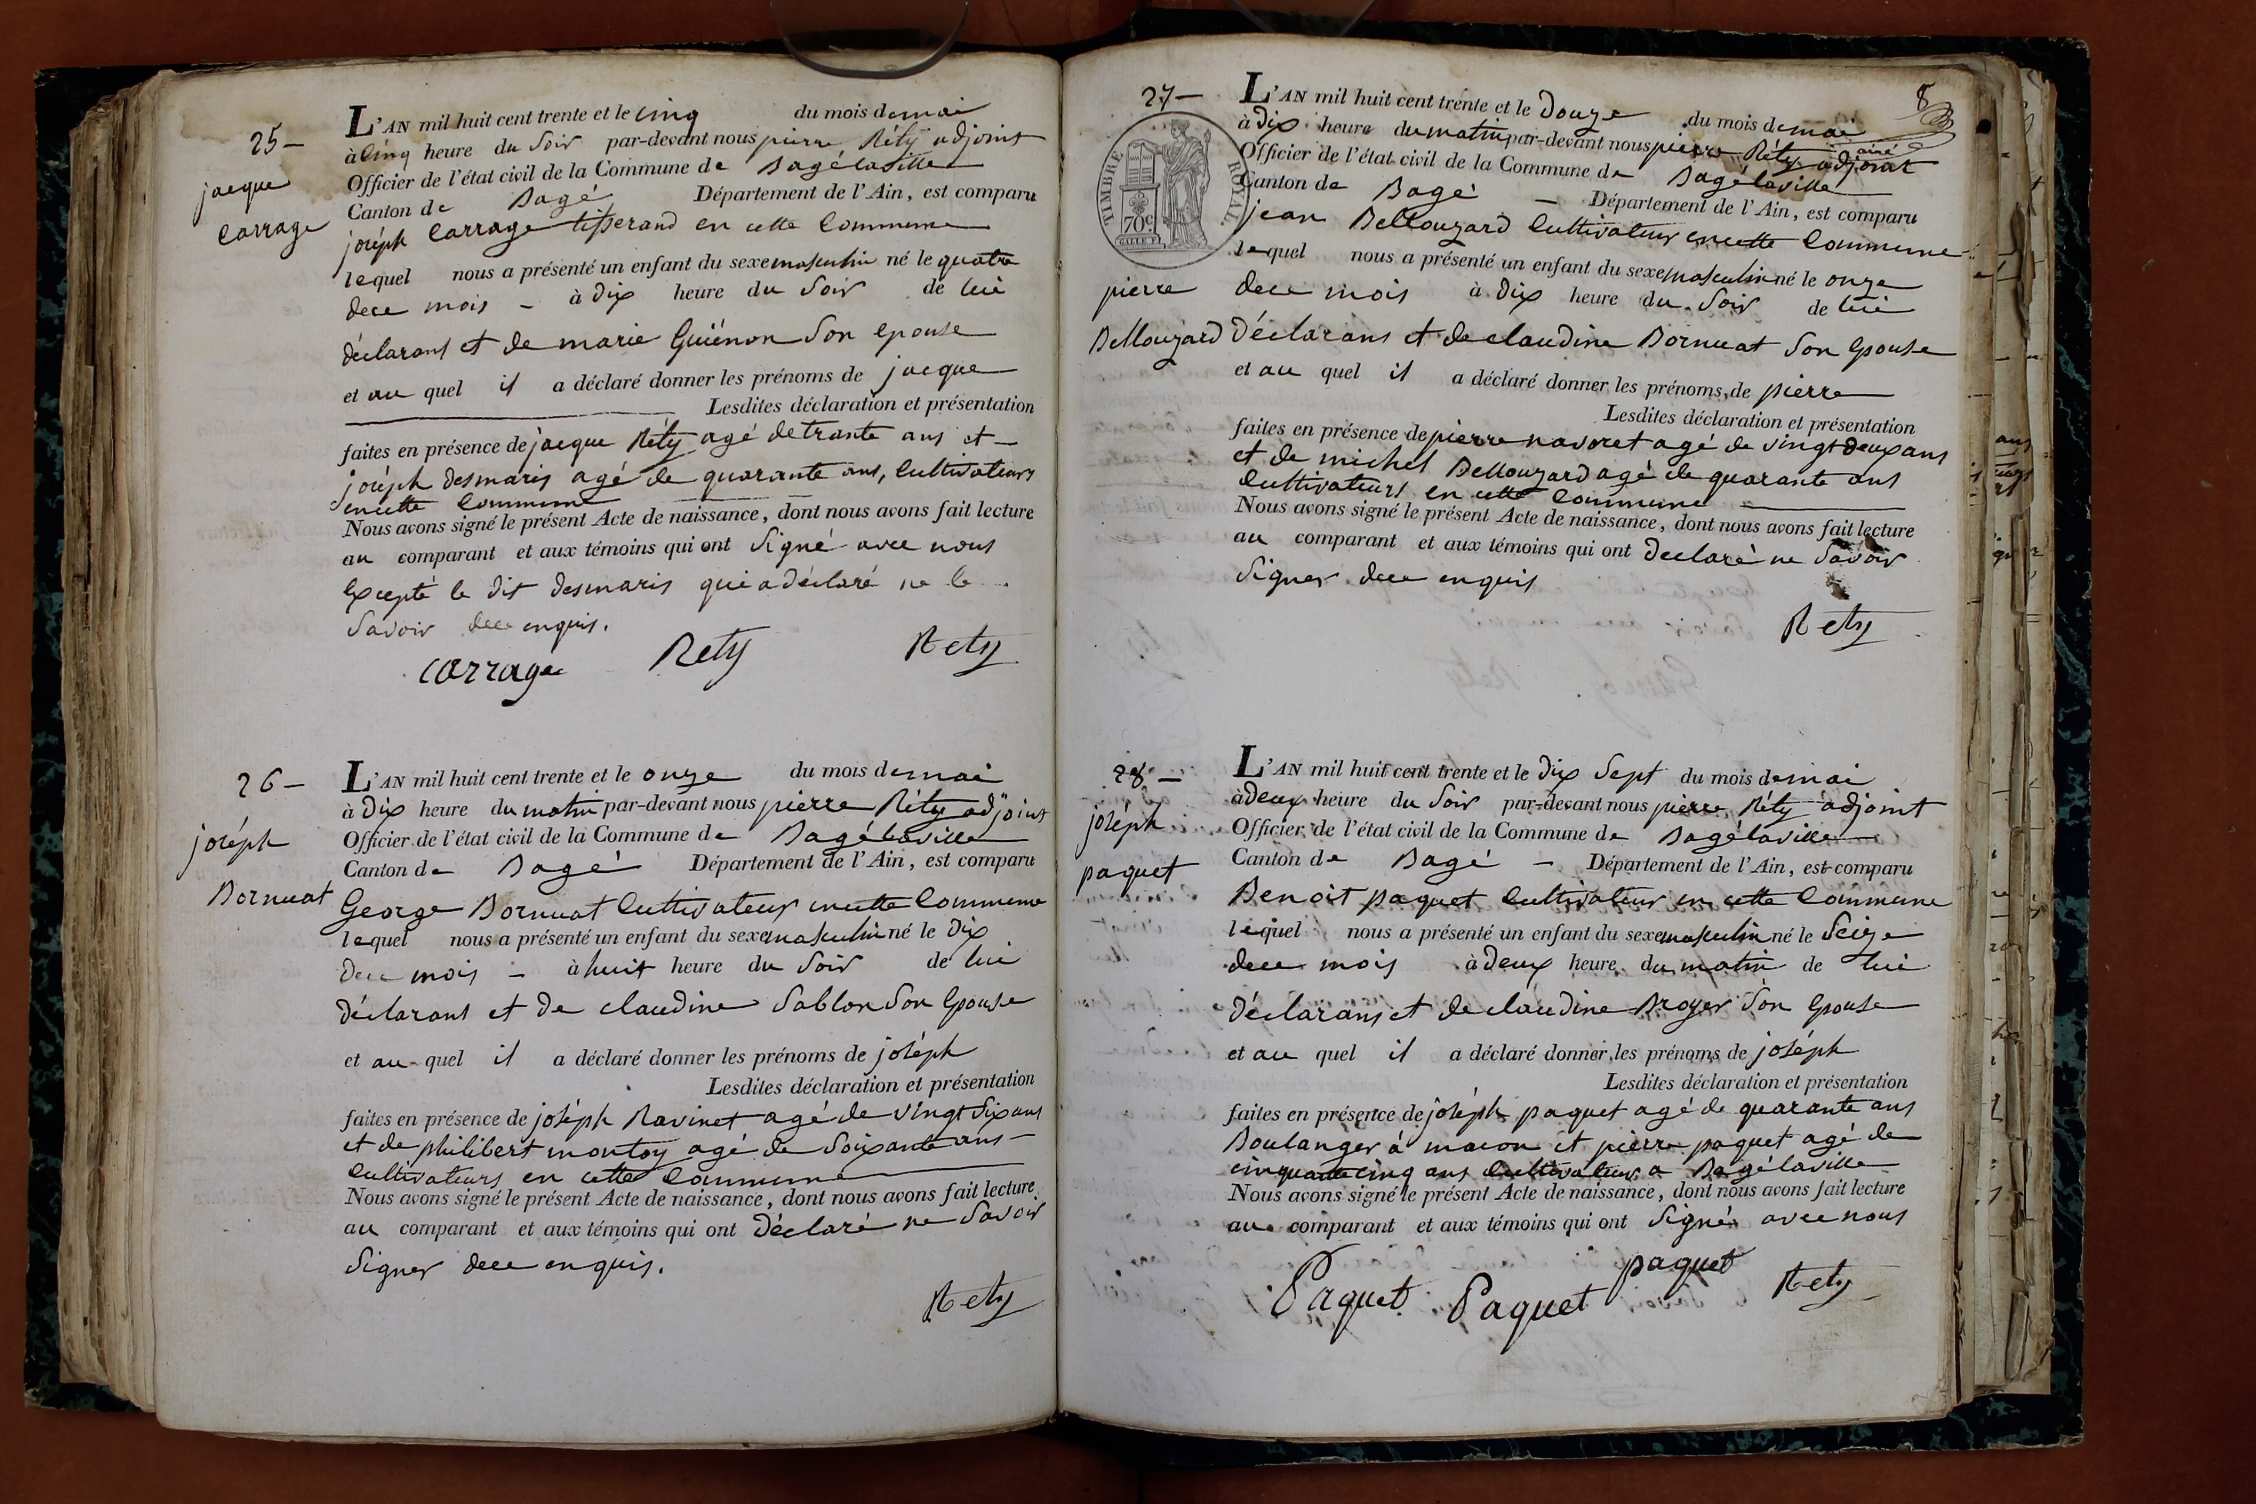 25 –
jacque
Carrage
L'AN mil huit cent trente et le Cinq du mois de mai
à Cinq heure du Soir par-devant nous pierre Réty adjoint
Officier de l'état civil de la Commune de Bagélaville
Canton de Bagé Département de l'Ain, est comparu
joséph Carrage tisserand en cette Commune
lequel nous a présenté un enfant du sexe masculin né le quatre
dece mois – à dix heure du Soir de lui
déclarant et de marie Guiénon Son epouse
et au quel il a déclaré donner les prénoms de jacque
Lesdites déclaration et présentation
faites en présence de jacque Réty agé de trante ans et –
joséph desmaris agé de quarante ans, Cultivateurs
encette Commune
Nous avons signé le présent Acte de naissance, dont nous avons fait lecture
au comparant et aux témoins qui ont Signé avec nous
Excepté le dit desmaris qui a déclaré ne le
Savoir dece enquis.
Carrage Réty Réty
26 –
joséph
Bornuat
L'AN mil huit cent trente et le onze du mois de mai
à Dix heure du matin par-devant nous pierre Réty adjoint
Officier de l'état civil de la Commune de Bagélaville
Canton de Bagé Département de l'Ain, est comparu
George Bornuat Cultivateur encette Commune
lequel nous a présenté un enfant du sexe masculin né le Dix
Dece mois – à huit heure du Soir de lui
déclarant et De claudine Sablon Son Epouse
et au quel il a déclaré donner les prénoms de joséph
Lesdites déclaration et présentation
faites en présence de joséph Ravinet agé de vingt Six ans
et de philibert montoy agé de Soixante ans –
Cultivateurs en cette Commune
Nous avons signé le présent Acte de naissance, dont nous avons fait lecture
au comparant et aux témoins qui ont Déclaré ne Savoir
Signer dece enquis.
Réty
8
27 –
TIMBRE ROYAL
70c
pierre
Bellouzard
L'AN mil huit cent trente et le Douze du mois de mai
à Dix heure du matin par-devant nous pierre Réty adjoint
Officier de l'état civil de la Commune de Bagélaville
Canton de Bagé – Département de l'Ain, est comparu
jean Bellouzard Cultivateur encette Commune
lequel nous a présenté un enfant du sexe masculin né le onze
dece mois à dix heure du Soir de lui
Déclarans et de claudine Bornuat Son Epouse
et au quel il a déclaré donner les prénoms de pierre
Lesdites déclaration et présentation
faites en présence de pierre navoret agé de vingt deux ans
et de michel Bellouzard agé de quarante ans
Cultivateurs en cette Commune
Nous avons signé le présent Acte de naissance, dont nous avons fait lecture
au comparant et aux témoins qui ont Declaré ne Savoir
Signer dece enquis
Réty
28 –
joséph
paquet
L'AN mil huit cent trente et le Dix Sept du mois de mai
à deux heure du Soir par-devant nous pierre Réty adjoint
Officier de l'état civil de la Commune de Bagélaville
Canton de Bagé – Département de l'Ain, est comparu
Benoit paquet Cultivateur en cette Commune
lequel nous a présenté un enfant du sexe masculin né le Seize
dece mois à deux heure du matin de lui
Déclarans et de claudine Broyer Son Epouse
et au quel il a déclaré donner les prénoms de joséph
Lesdites déclaration et présentation
faites en présence de joséph paquet agé de quarante ans
Boulanger à macon et pierre paquet agé de
cinquante cinq ans Cultivateur a Bagélaville
Nous avons signé le présent Acte de naissance, dont nous avons fait lecture
au comparant et aux témoins qui ont Signé avec nous
Paquet Paquet paquet Réty